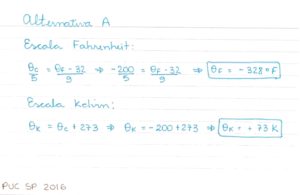 Alternativa A
Escala Fahrenheit:
θc/5 = θF - 32/9 ⇒ -200/5 = θF - 32/9 ⇒ θF = - 328 °F
Escala Kelvin:
θK = θc + 273 ⇒ θK = -200 + 273 ⇒ θK = + 73 K
PUC SP 2016